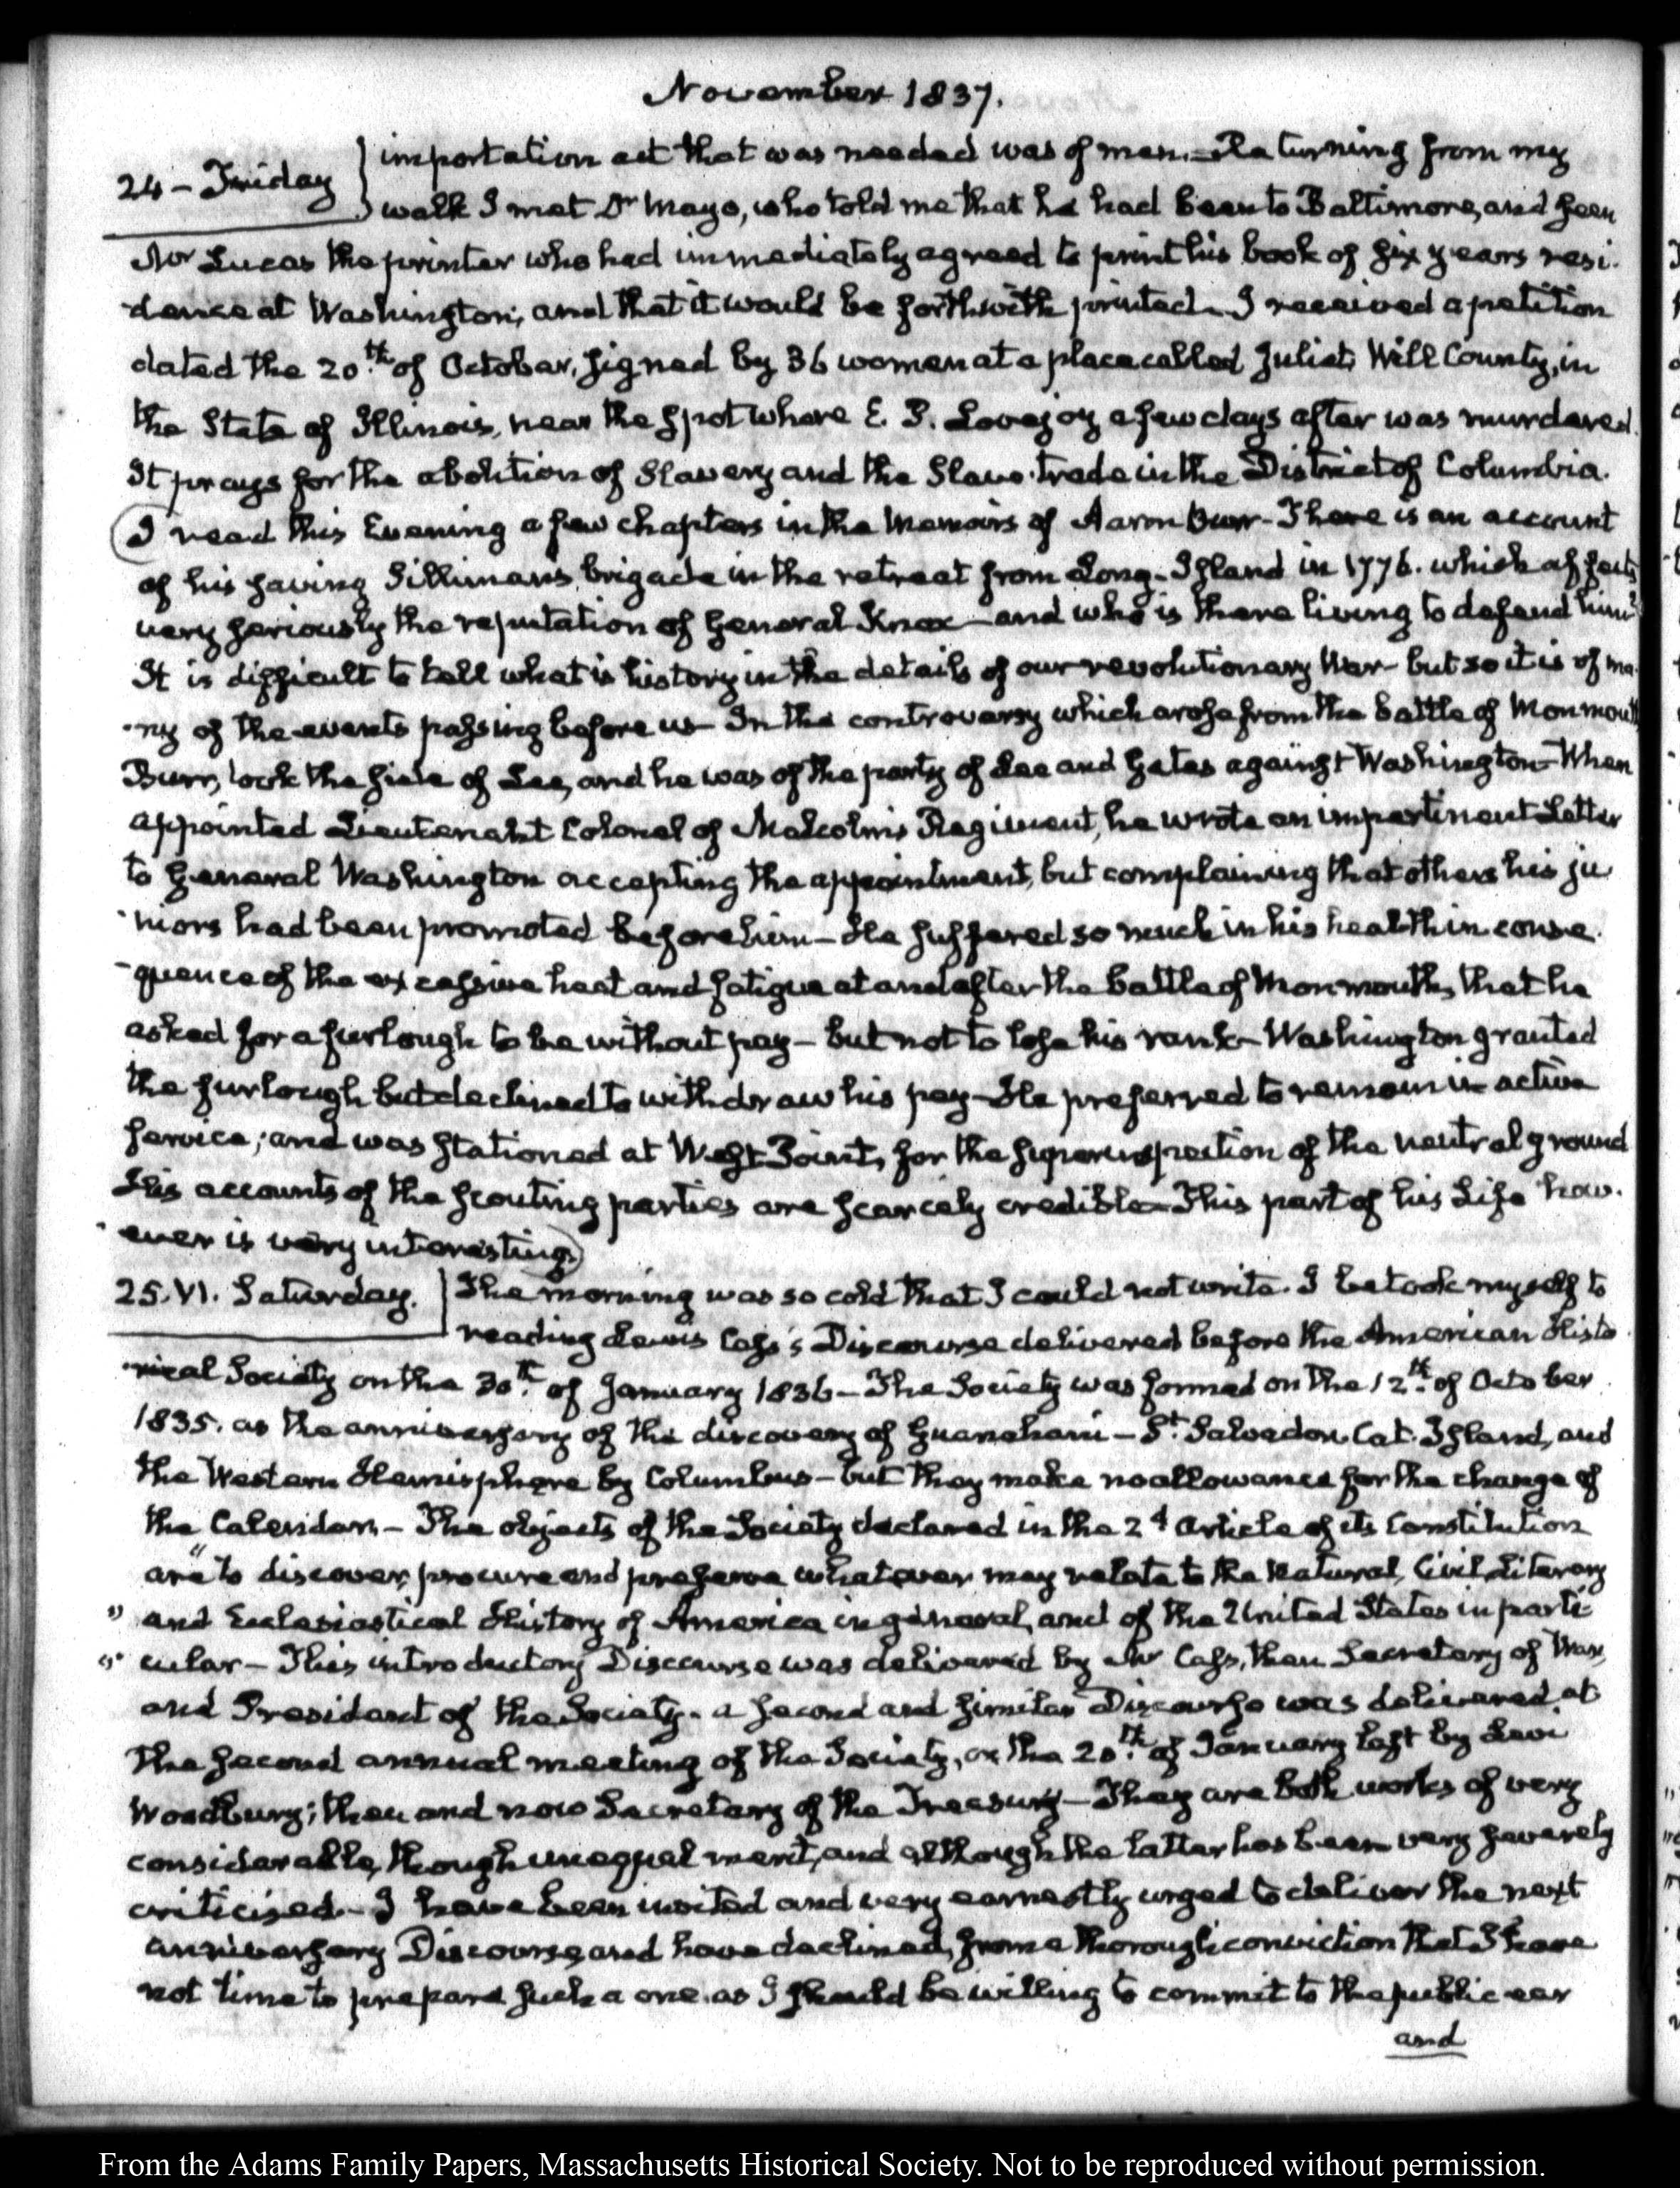 November 1837.
24 – Friday
importation act that was needed was of men. – Returning from my
walk I met Dr Mayo, who told me that he had been to Baltimore, and seen
Mr Lucas the printer who had immediately agreed to print his book of six years resi-
dence at Washington; and that it would be forthwith printed – I received a petition
dated the 20th of October, signed by 36 women at a place called Juliet, Will County, in
the State of Illinois, near the spot where E. P. Lovejoy a few days after was murdered.
It prays for the abolition of Slavery and the Slave-trade in the District of Columbia.
I read this Evening a few chapters in the Memoirs of Aaron Burr – There is an account
of his saving Silliman's brigade in the retreat from Long-Island in 1776. which affects
very seriously the reputation of General Knox – and who is there living to defend him?
It is difficult to tell what is history in the details of our revolutionary War – but so it is of ma-
-ny of the events passing before us – In the controversy which arose from the battle of Monmouth
Burr, took the side of Lee, and he was of the party of Lee and Gates against Washington – When
appointed Lieutenant Colonel of Malcolm's Regiment, he wrote an impertinent Letter
to General Washington accepting the appointment, but complaining that others his ju
-niors had been promoted before him – He suffered so much in his health in conse-
-quence of the excessive heat and fatigue at and after the battle of Monmouth, that he
asked for a furlough to be without pay – but not to lose his rank – Washington granted
the furlough but declined to withdraw his pay – He preferred to remain in active
service; and was stationed at West Point, for the superinspection of the neutral ground
His accounts of the scouting parties are scarcely credible – This part of his Life how-
-ever is very interesting.
25. VI. Saturday.
The morning was so cold that I could not write. I betook myself to
reading Lewis Cass's Discourse delivered before the American Histo-
-rical Society on the 30th of January 1836 – The Society was formed on the 12th of October
1835. as the anniversary of the discovery of Guanahani – St. Salvador, Cat-Island, and
the Western Hemisphere by Columbus – but they make no allowance for the change of
the Calendar, – The objects of the Society declared in the 2d Article of its Constitution
are "to discover, procure and preserve whatever may relate to the Natural, Civil, Literary
" and Ecclesiastical History of America in general, and of the United States in parti-
"-cular – This introductory Discourse was delivered by Mr Cass, then Secretary of War,
and President of the Society. a second and similar Discourse was delivered at
the second annual meeting of the Society, on the 20th of January last by Levi
Woodbury; then and now Secretary of the Treasury – They are both works of very
considerable, though unequal merit, and although the latter has been very severely
criticised – I have been invited and very earnestly urged to deliver the next
anniversary Discourse, and have declined, from a thorough conviction that I have
not time to prepare such a one, as I should be willing to commit to the public ear
and
From the Adams Family Papers, Massachusetts Historical Society. Not to be reproduced without permission.